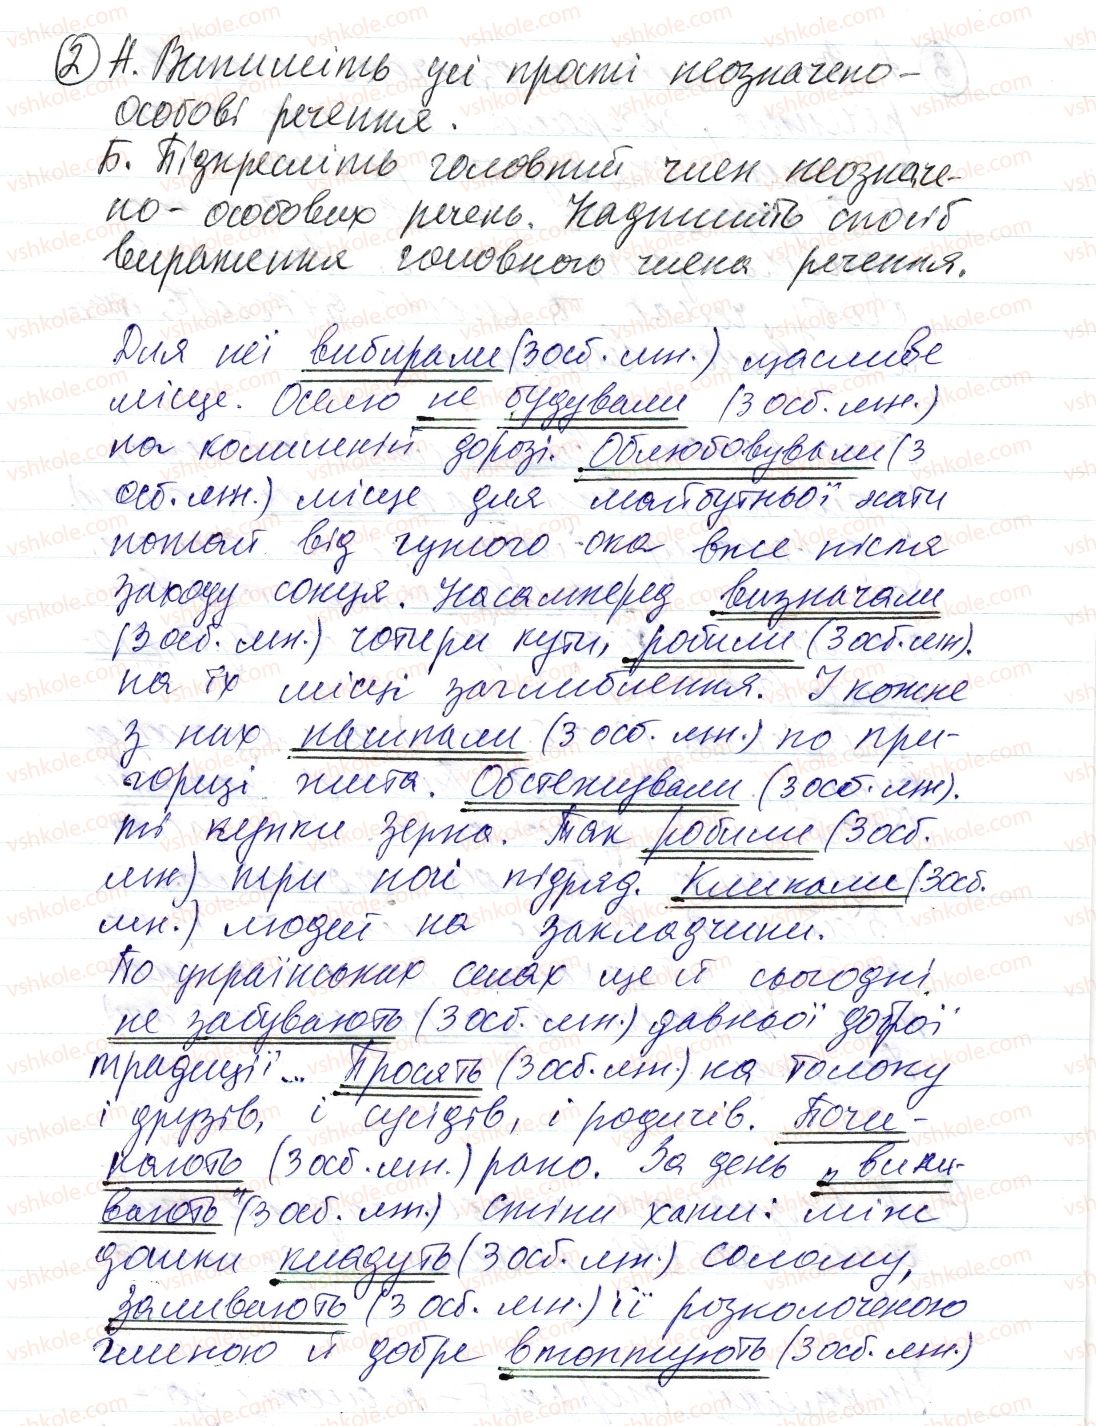 2 А. Випишіть усі прості неозначено-
особові речення.
Б. Підкресліть головний член неозначе-
но-особових речень. Надпишіть спосіб
вираження головного члена речення.
Для неї вибирали (3 ос. мн.) щасливе
місце. Оселю не будували (3 ос. мн.)
на колишній дорозі. Облюбовували (3
ос. мн.) місце для майбутньої хати
потай від чужого ока вже після
заходу сонця. Насамперед визначали
(3 ос. мн.) чотири кути, робили (3 ос. мн).
на їх місці заглиблення. І кожне
з них насипали (3 ос. мн.) по при-
горщі жита. Обстежували (3 ос. мн).
ті купки зерна. Так робили (3 ос.
мн) три ночі підряд. Кликали (3 ос.
мн.) людей на закладчини.
По українських селах ще й сьогодні
не забувають (3 ос. мн.) давньої доброї
традиції... Просять (3 ос. мн.) на толоку
і друзів, і сусідів, і родичів. Почи-
нають (3 ос. мн.) рано. За день „вики-
вають" (3 ос. мн.) стіни хати: між
дошки кладуть (3 ос. мн.) солому,
заливають (3 ос. мн.) її розколоченою
глиною й добре втоптують (3 ос. мн.)